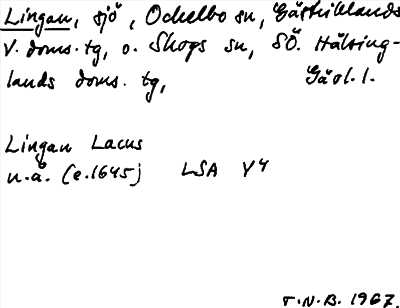 Lingan, sjö, Ockelbo sn, Gästriklands
V. doms. tg, o. Skogs sn, SÖ. Hälsing-
lands doms. tg, Gävl. l.
Lingan Lacus
n.ä. (e.1645) LSA Y4
T.N.B. 1967.